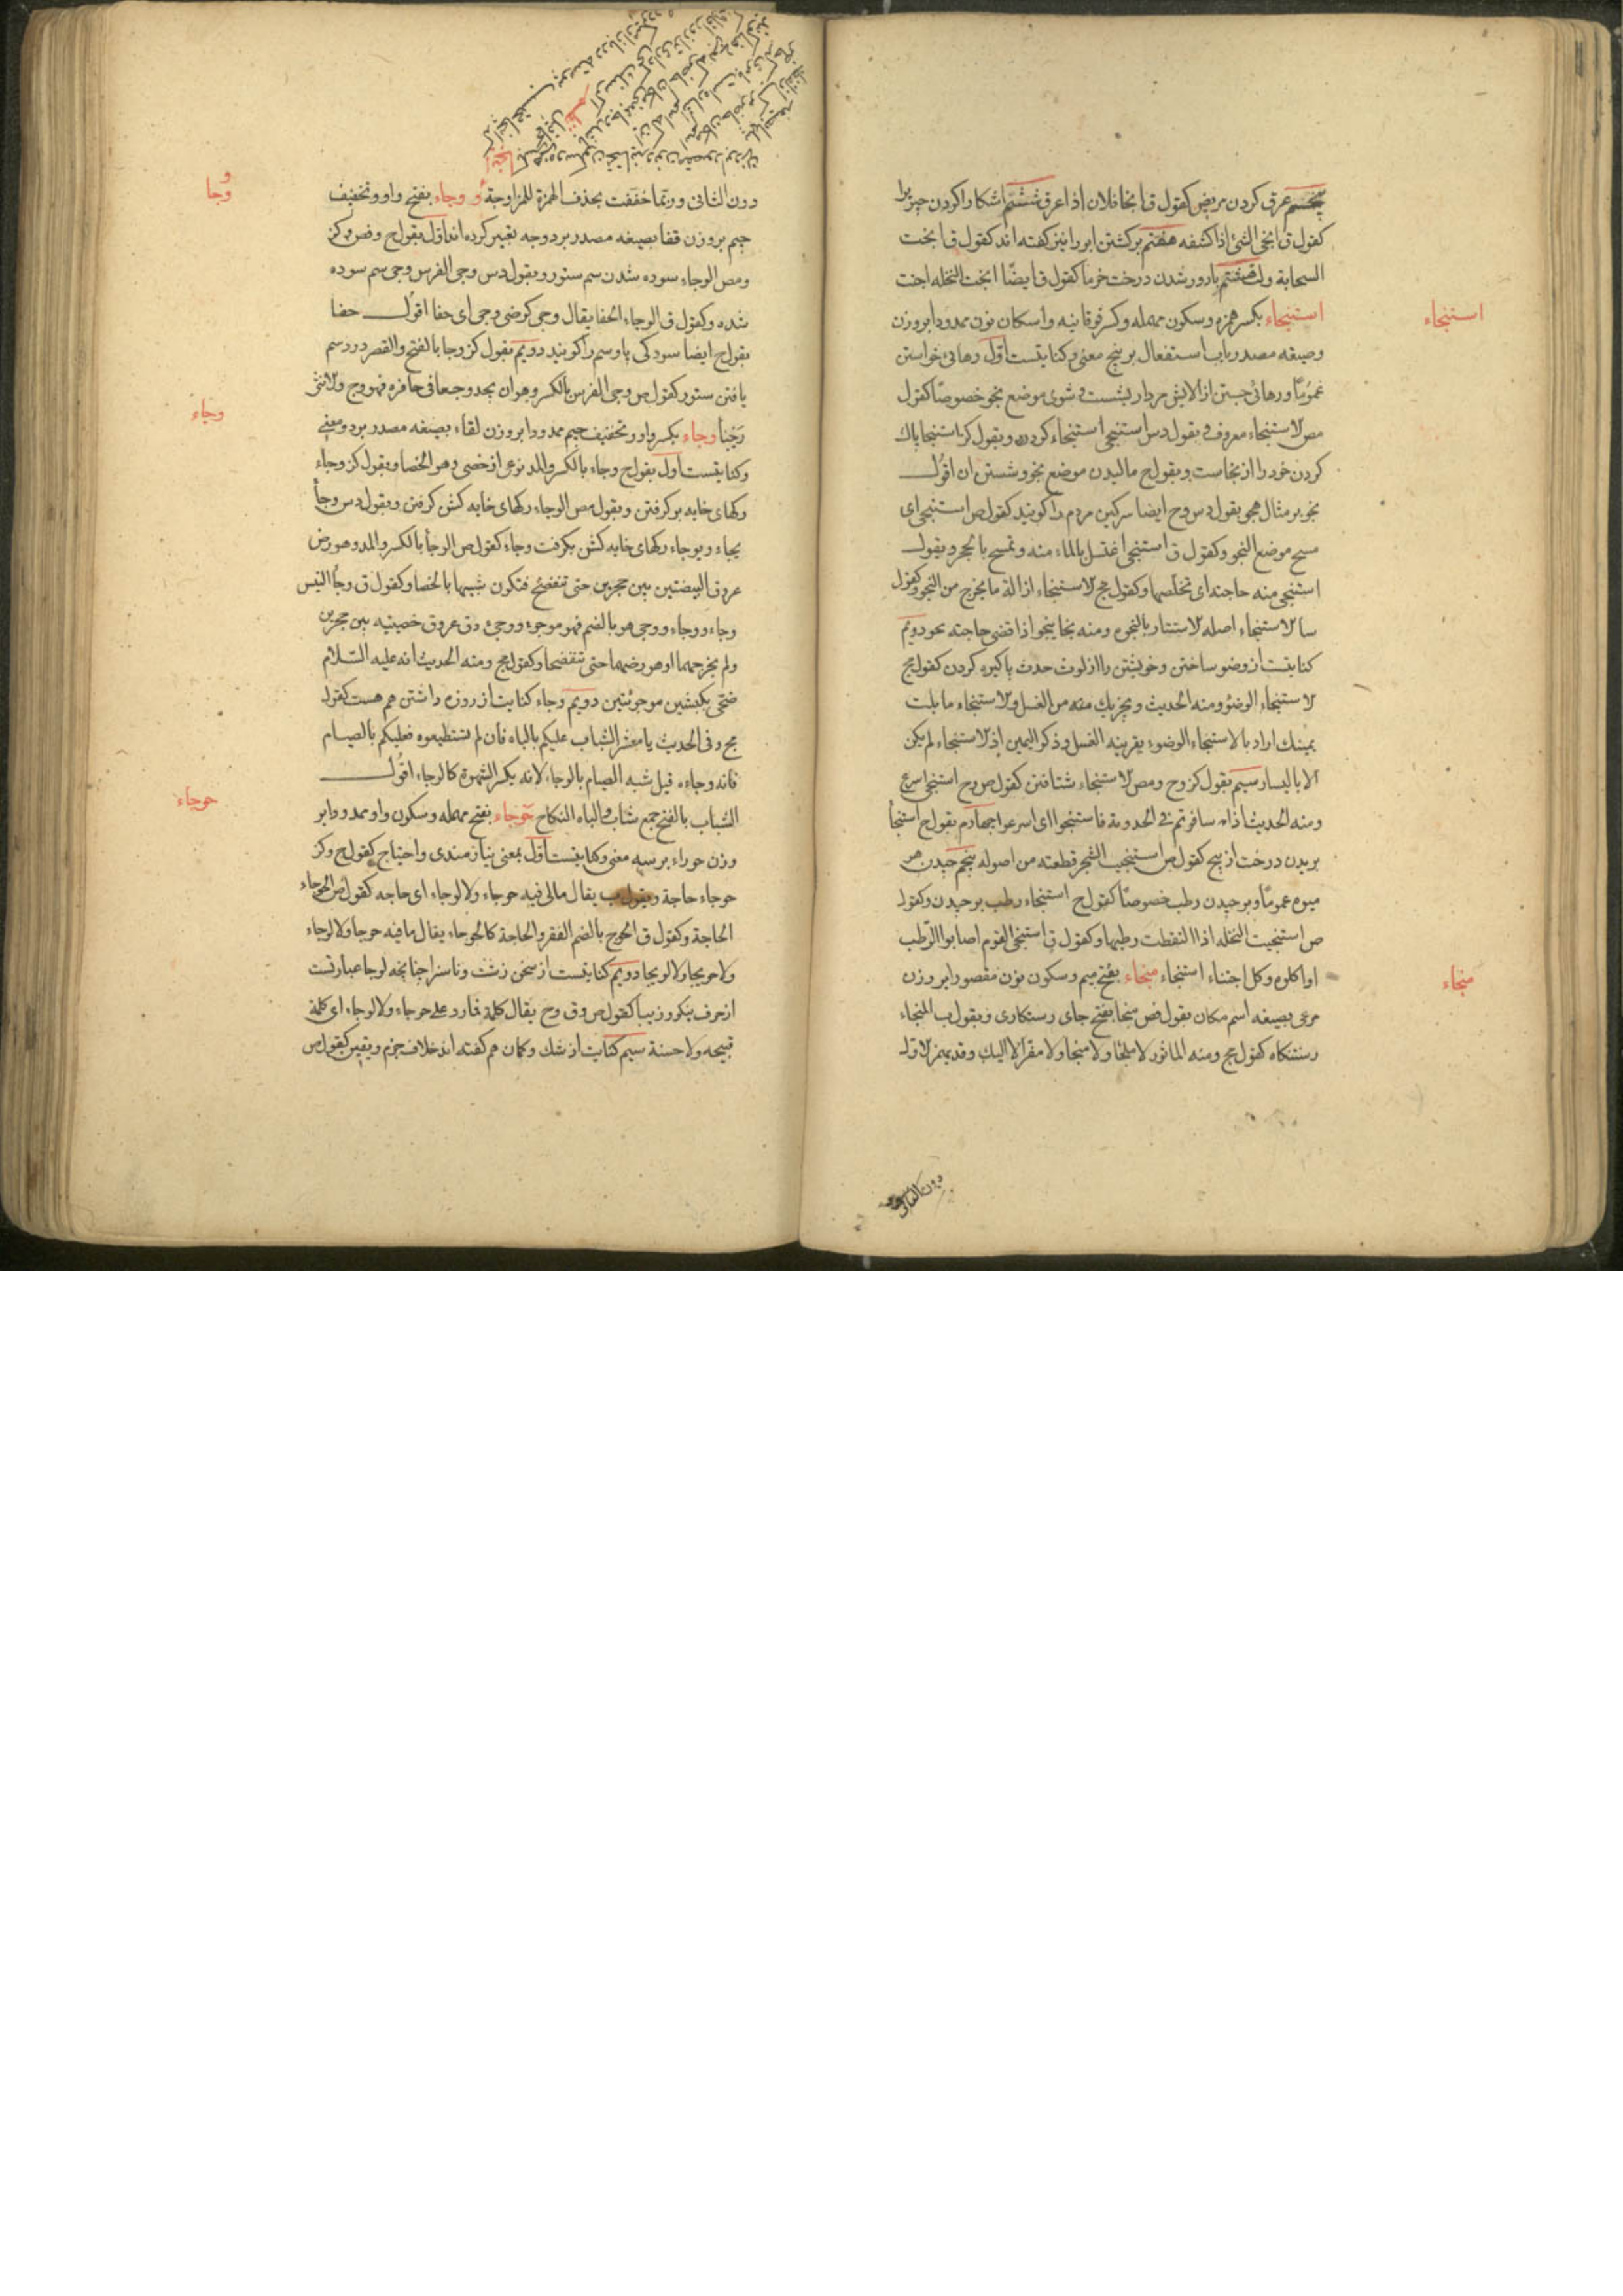 عرق کردن مریض کقول ق انجا فلان اذا عرق ششم اشکارا کردن چیزیرا
کقول ق انجی الشئ اذا کشفه هفتم برکشتن ابر را نیز کفته اند کقول ق انجت
السحابة ولت هشتم بارور شدن درخت خرما کقول ق ایضًا انجت النخله اجنت
استنجاء
استنجاء بکسر همزه و سکون مهمله و کسر فوقانیه و اسکان نون ممدودا بر وزن
وصیغه مصدر باب استفعال بر پنج معنی و کنایتست اوّل رهائی خواستن
عمومًا و رهائی جستن از الایش مردار بشست و شوی موضع نجو خصوصًا کقول
مص لاستنجاء معروف و بقول دس استنجی استنجاء کردن و بقول کز استنجا پاک
کردن خود را از نجاست و بقول ج مالیدن موضع نجو و شستن ان اقول
نجو بر مثال هجو بقول دس و ح ایضا سرکین مردم را کویند کقول ص استنجی ای
مسح موضع النجو و کقول ق استنجی اغتسل بالماء منه و تمسح بالحجر و بقول
استنجی منه حاجته ای تخلصها و کقول مج لاستنجاء ازالة ما یخرج من النجو و کقول
سا لاستنجاء اصله لاستتار بالنجوه و منه نجا ینجو اذا قضی حاجته نحو دویم
کنایتست از وضو ساختن و خویشتن را از لوث حدث پاکیزه کردن کقول مج
لاستنجاء الوضوُ و منه الحدیث و یجزیک منه من الغسل و لاستنجاء ما بلت
یمینک اراد بالاستنجاء الوضوء بقرینه الغسل و ذکر الیمین اذ لاستنجاء لم یکن
الا بالیسار سیم بقول کز و ح و مص لاستنجاء شتافتن کقول ص و ح استنجی اسرع
و منه الحدیث اذا سافرتم فی الجدوبة فاستنجوا ای اسرعوا چهارم بقول ج استنجا
بریدن درخت از بیخ کقول ص استنجیت الشجر قطعته من اصوله پنجم چیدن هر
میوه عمومًا و برچیدن رطب خصوصًا کقول ج استنجاء رطب برچیدن و کقول
ص استنجیت النخله اذا التقطت رطبها و کقول ق استنجی القوم اصابوا الرّطب
منجاء
او اکلوه و کل اجتناء استنجاء منجاء بفتح میم و سکون نون مقصورا بر وزن
مرعی بصیغه اسم مکان بقول فص منجا بفتح جای رستکاری و بقول ب المنجاء
رستنکاه کقول مج و منه الماثور لا ملجا و لا منجا و لا مفر الا الیک و قد یهمز لاول
دون الثانی و ربما
دون الثانی و ربّما خففت بحذف الهمزة للمزاوجة و وجاء بفتح واو و تخفیف
وجا
جیم بر وزن قفا بصیغه مصدر بر دو وجه تغیر کرده اند اوّل بقول ج و فص و کز
و مص الوجاء سوده شدن سم ستور و بقول دس وجی الفرس وجی سم سوده
شده و کقول ق الوجاء الحفا یقال وجی کرضی وجی ای حفا اقول حفا
بقول ج ایضا سودکی پا و سم را کویند دویم بقول کز وجا بالفتح و القصر درد سم
یافتن ستور کقول ص وجی الفرس بالکسر و هو ان یجد وجعا فی حافره فهو وج و لانثی
وجاء
وجْیَا وجاء بکسر واو و تخفیف جیم ممدودا بر وزن لقاء بصیغه مصدر بر دو معنی
و کنایتست اول بقول ج وجاء بالکسر و المد نوعی از خصی و هو الخصا و بقول کز وجاء
رکهای خایه برکرفتن و بقول مص الوجاء رکهای خایه کش کرفتن و بقول دس وجأ
یجاء و یوجاء رکهای خایه کش بکرفت وجاء کقول ص الوجأ بالکسر و المد و هو رض
عروق البیضتین بین حجرین حتی تنفضخ فتکون شبیها بالخصا و کقول ق وجأ التیس
وجاء و وجاء و وجی هو بالضم فهو موجوء و وجئ دق عروق خصیتیه بین حجرین
ولم یخرجهما او هو رضهما حتی تنفضحا و کقول مج و منه الحدیث انه علیه السّلام
ضحّی بکبشین موجوئتین دویم وجاء کنایت از روزه داشتن هم هست کقول
مج و فی الحدیث یا معشر الشباب علیکم بالباه فان لم تستطیعوه فعلیکم بالصیام
فانه وجاءه قیل شبه الصیام بالوجاء لانه یکسر الشهوة کالوجاء اقول
حوجاء
الشباب بالفتح جمع شاب و الباه النکاح حَوْجاء بفتح مهمله و سکون واو ممدودا بر
وزن حوراء بر سه معنی و کنایتست اوّل بمعنی نیازمندی و احتیاج کقول ج و کز
حوجاء حاجة و بقول ب یقال مالی فیه حوجاء و لا لوجاء ای حاجه کقول ص الحوجاء
الحاجة و کقول ق الحوج بالضم الفقر و الحاجة کالحوجاء یقال ما فیه حوجا و لا لوجاء
ولا حویجا و لا لویجا دویم کنایتست از سخن زشت و ناسزا چنانچه لوجا عبارتست
از حرف نیکو و زیبا کقول ص و ق و ح یقال کلمة فما رد علی حوجاء و لا لوجاء ای کلمة
قبیحه و لا حسنة سیم کنایت از شک و کمان هم کفته اند خلاف جزم و یقین کقول ص